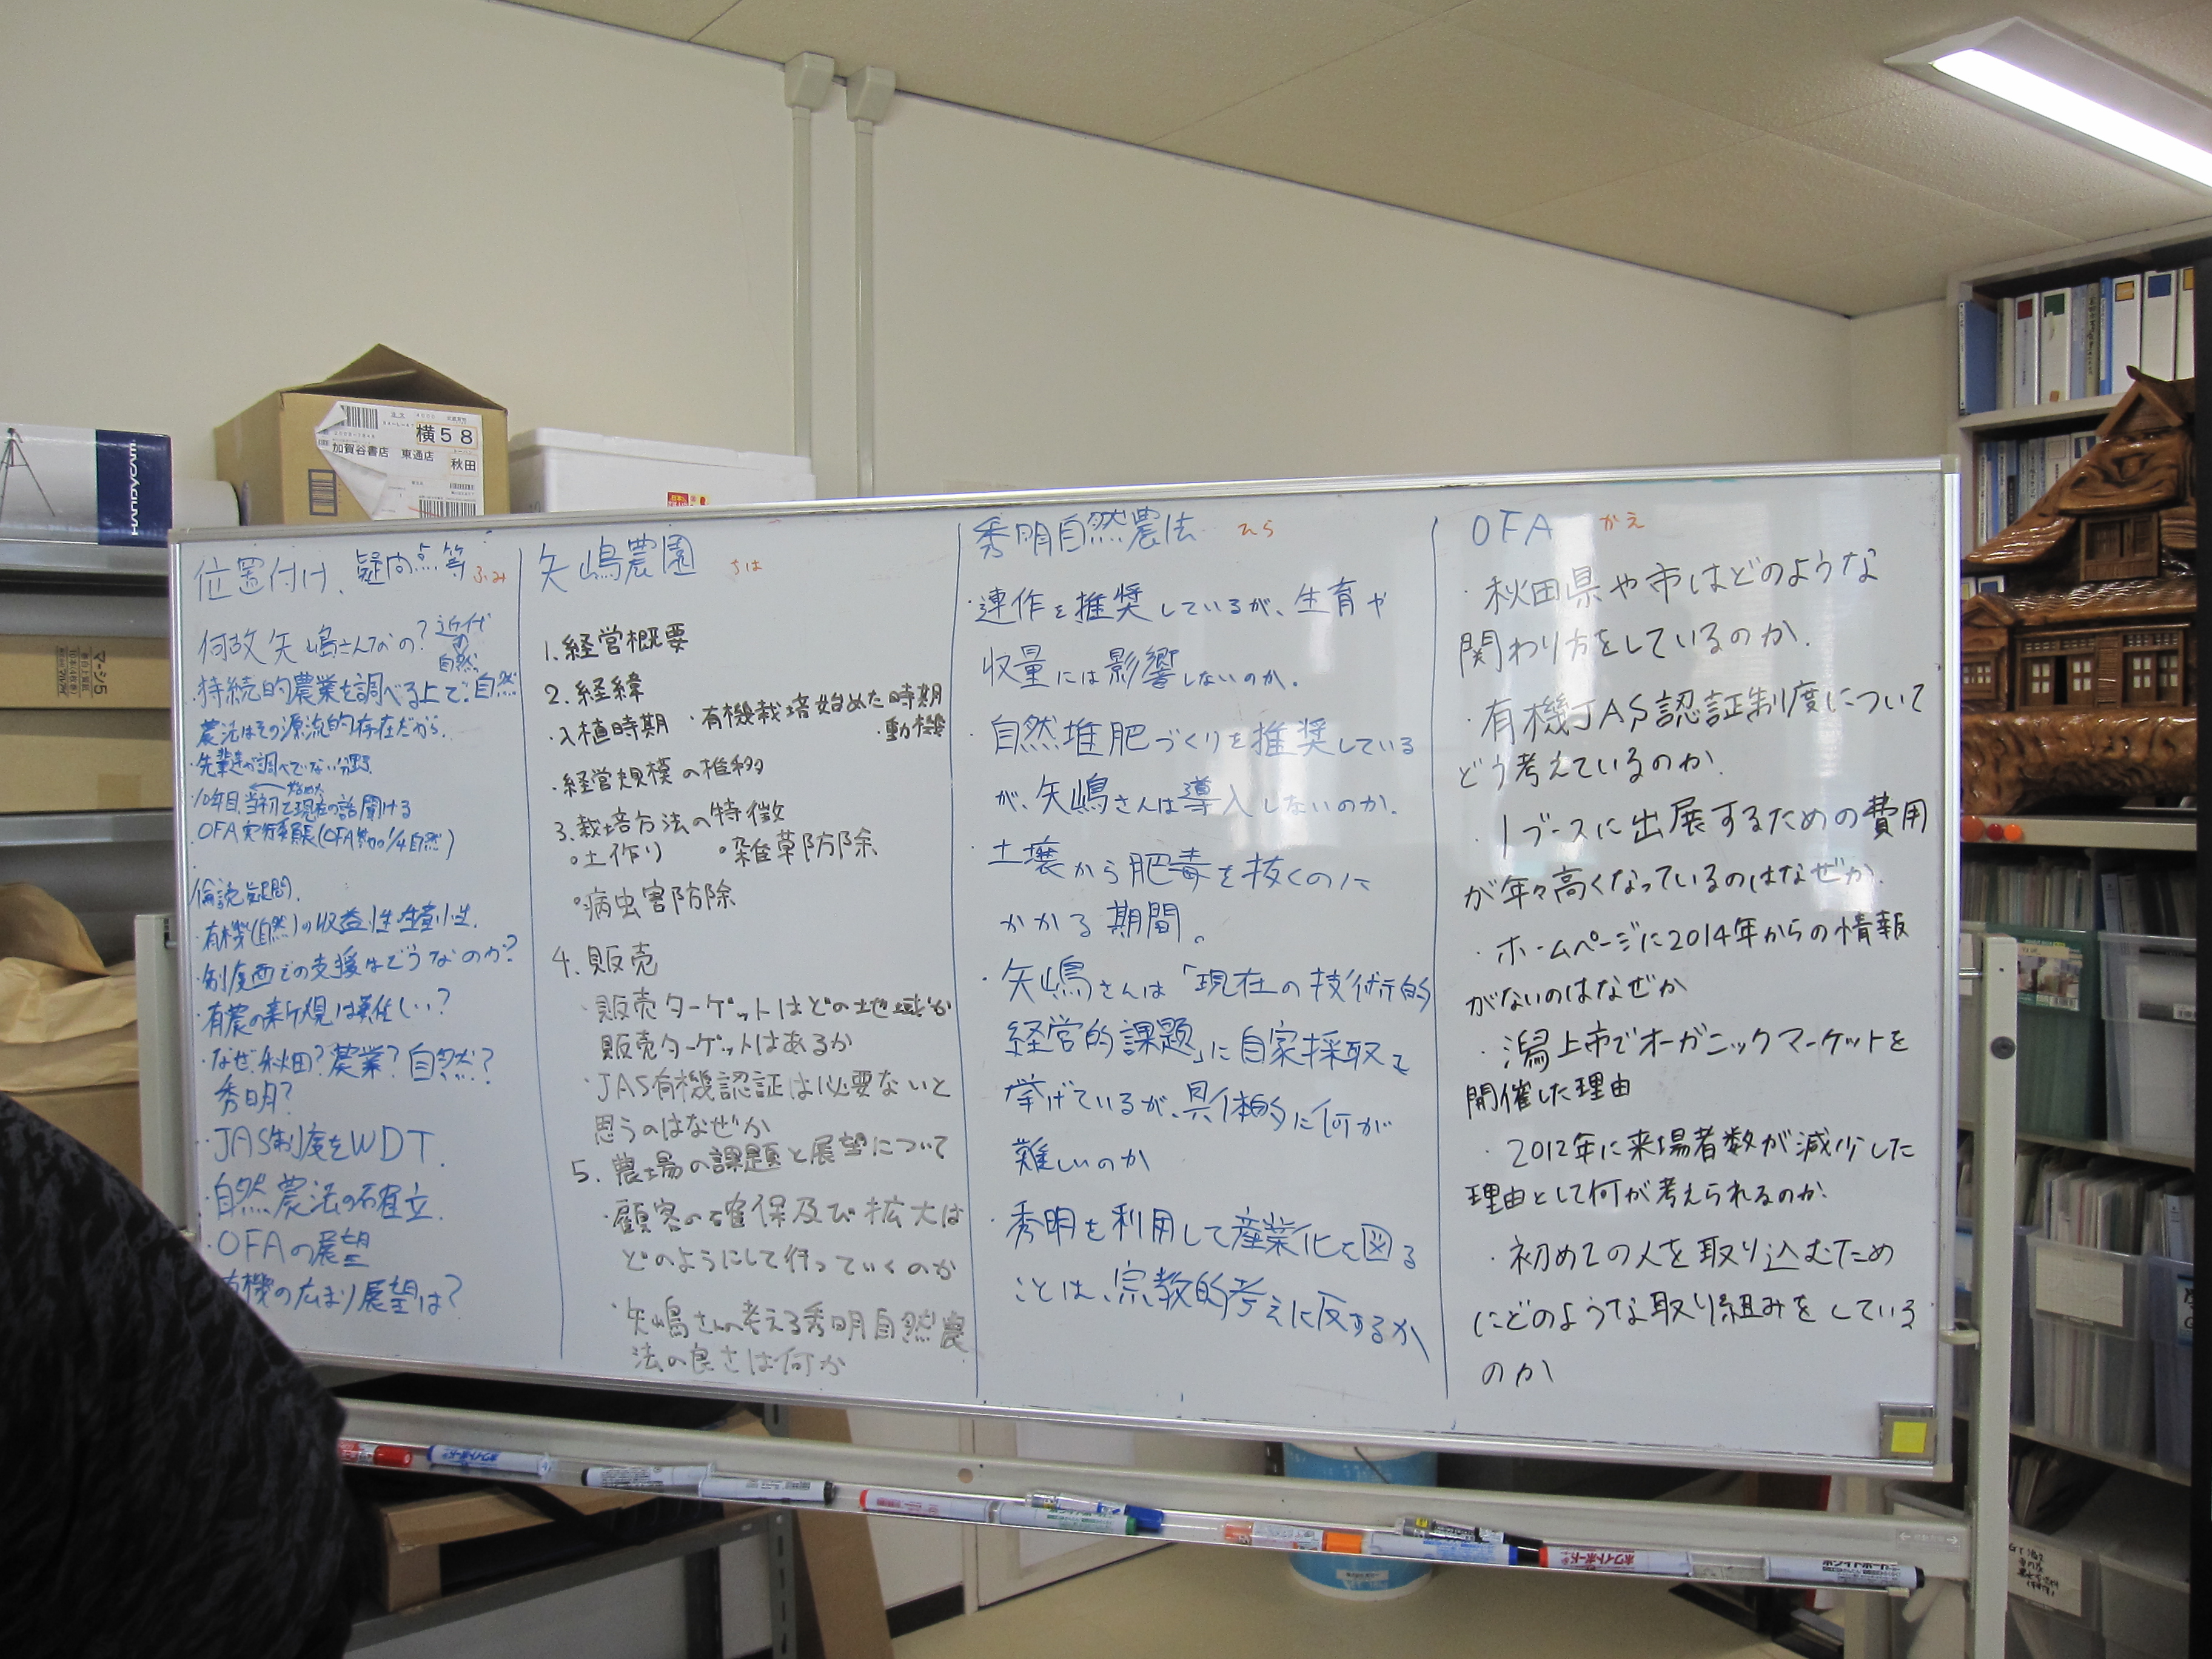 横58
加賀谷書店 東通店
秋田
位置付け、疑問点等 ふみ
何故矢嶋さんなの? 近代の自然
・持続的農業を調べる上で、自然
農法はその源流的存在だから。
・先輩達が調べてない分野。
・10年目、当初と現在の話聞ける
始めた
・OFA実行委員長(OFA参加1/4自然)
・有機(自然)の収益性・生産性。
・制度面での支援はどうなのか?
・有農の新規は難しい?
・なぜ、秋田?農業?自然?
秀明?
・JAS制度をWDT.
・自然農法の確立.
・OFAの展望
機の広まり展望は?
矢嶋農園 ちは
1.経営概要
2.経緯
・入植時期 ・有機栽培始めた時期
・動機
・経営規模の推移
3.栽培方法の特徴
・土作り ・雑草防除
・病虫害防除
4.販売
・販売ターゲットはどの地域か
販売ターゲットはあるか
・JAS有機認証は必要ないと
思うのはなぜか
5.農場の課題と展望について
・顧客の確保及び拡大は
どのようにして行っていくのか
・矢嶋さんの考える秀明自然農
法の良さは何か
秀明自然農法 ひら
・連作を推奨しているが、生育や
収量には影響しないのか。
・自然堆肥づくりを推奨している
が、矢嶋さんは導入しないのか.
・土壌から肥毒を抜くのに
かかる期間。
・矢嶋さんは「現在の技術的
経営的課題」に自家採取を
挙げているが、具体的に何が
難しいのか
・秀明を利用して産業化を図る
ことは、宗教的考えに反するか
OFA かえ
・秋田県や市はどのような
関わり方をしているのか.
・有機JAS認証制度について
どう考えているのか.
・1ブースに出展するための費用
が年々高くなっているのはなぜか.
・ホームページに2014年からの情報
がないのはなぜか
・潟上市でオーガニックマーケットを
開催した理由
・2012年に来場者数が減少した
理由として何が考えられるのか.
・初めての人を取り込むため
にどのような取り組みをしている
のか
ホワイトボード